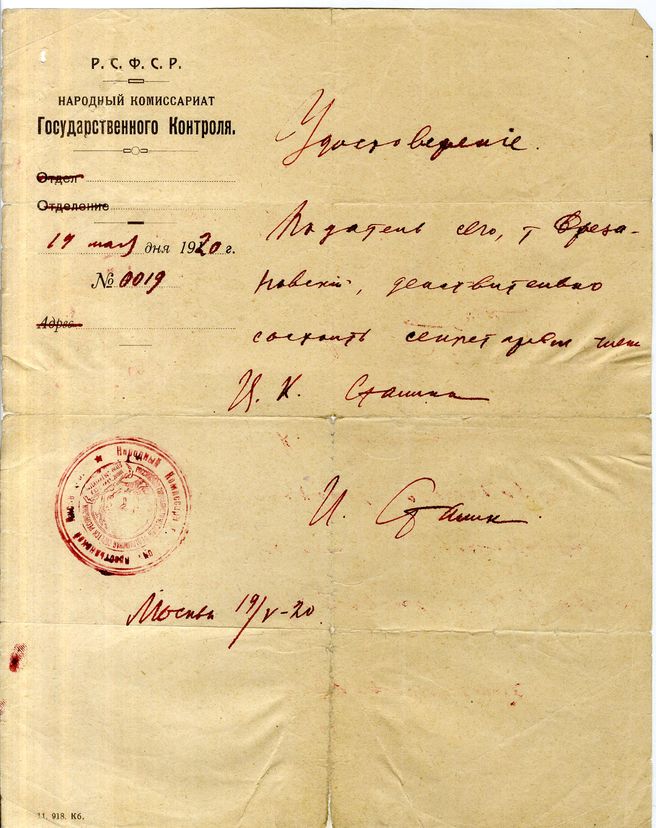 Р. С. Ф. С. Р.
НАРОДНЫЙ КОМИССАРИАТ
Государственного Контроля.
Отдел
Отделение
19 мая дня 1920 г.
№ 0019
Адрес
Удостоверенiе.
Податель сего, т
действительно
состоитъ секретарем члена
Ц. К. Сталина
И. Сталин
Народный Комиссариат
Москва 19/V-20
11. 918. Кб.